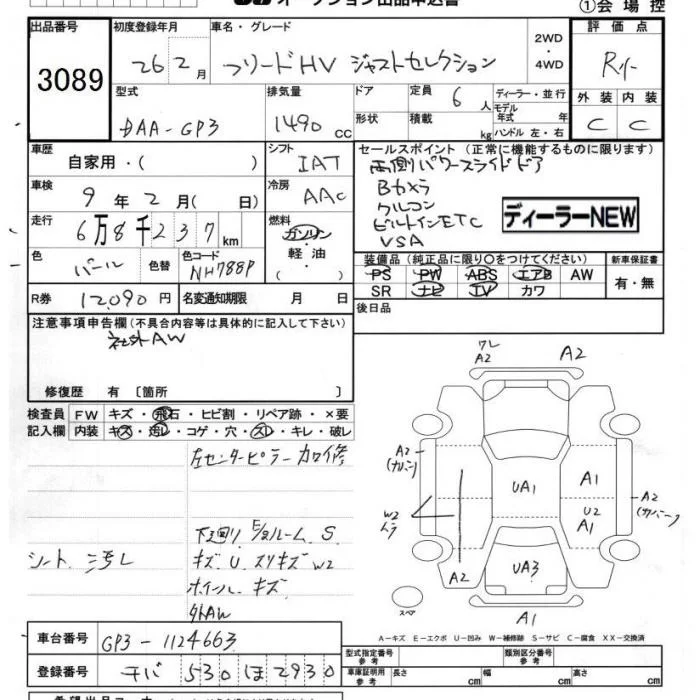 オークション出品申込書
①会場控
出品番号
3089
初度登録年月
26 2 月
車名・グレード
フリードHV ジャストセレクション
2WD
・
4WD
評価点
R
外装 内装
C C
型式
DAA-GP3
排気量
1490 cc
ドア
形状
定員 6 人
積載 kg
ディーラー・並行
モデル
年式 年
ハンドル 左・右
車歴
自家用・( )
シフト
IAT
セールスポイント (正常に機能するものに限ります)
両側パワースライドドア
Bカメラ
クルコン
ビルトインETC
VSA
ディーラーNEW
車検
9 年 2 月 ( 日)
冷房
AAC
走行
6万8千237 km
燃料
ガソリン
・
軽油
( )
色
パール
色替
色コード
NH788P
装備品 (純正品に限り〇をつけてください)
PS PW ABS エアB AW
SR ナビ TV カワ
新車保証書
有・無
R券 12,090 円
名変通知期限 月 日
後日品
注意事項申告欄 (不具合内容等は具体的に記入して下さい)
社外AW
修復歴 有 〔箇所 〕
検査員
記入欄
FW キズ・飛石・ヒビ割・リペア跡・×要
内装 キズ・汚レ・コゲ・穴・スレ・キレ・破レ
左センターピラー カロ修
下廻り E/ルーム S
シート 汚レ
キズ U スリキズ W2
ホイール キズ
外AW
ワレ
A2
A2
A2
A1
A2
(カバー)
UA1
U2
A1
W2
ムラ
A2
UA3
スペア
A1
A-キズ E-エクボ U-凹み W-補修跡 S-サビ C-腐食 XX-交換済
車台番号
GP3-1124663
登録番号
チバ 530 ほ 2930
型式指定番号
参考
類別区分番号
参考
車庫証明用
参考
長さ cm
幅 cm
高さ cm